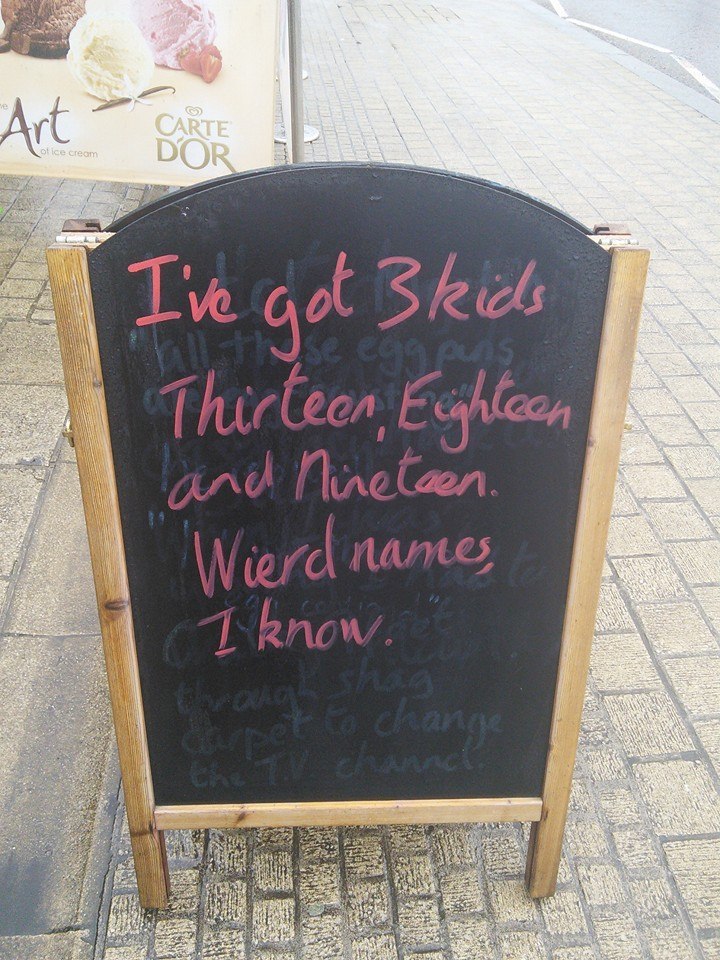 Art
of ice cream
CARTE
D'OR
I've got 3 kids
Thirteen, Eighteen
and Nineteen.
Wierd names,
I know.
through shag
carpet to change
the T.V. channel.